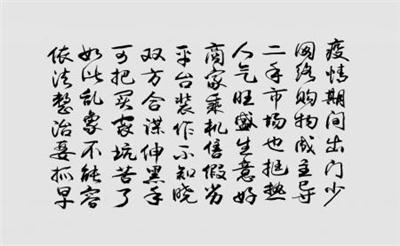 疫情期间出门少
网络购物成主导
二手市场也挺热
人气旺盛生意好
商家乘机售假劣
平台装作不知晓
双方合谋伸黑手
可把买家坑苦了
如此乱象不能容
依法整治要抓早